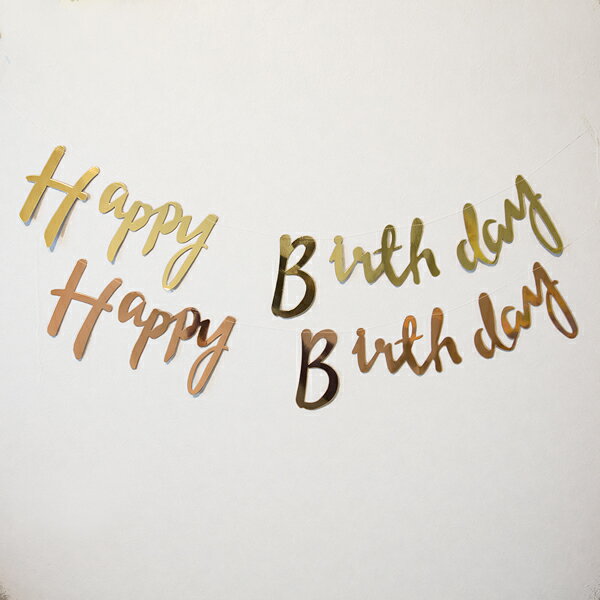 Happy Birthday
Happy Birthday